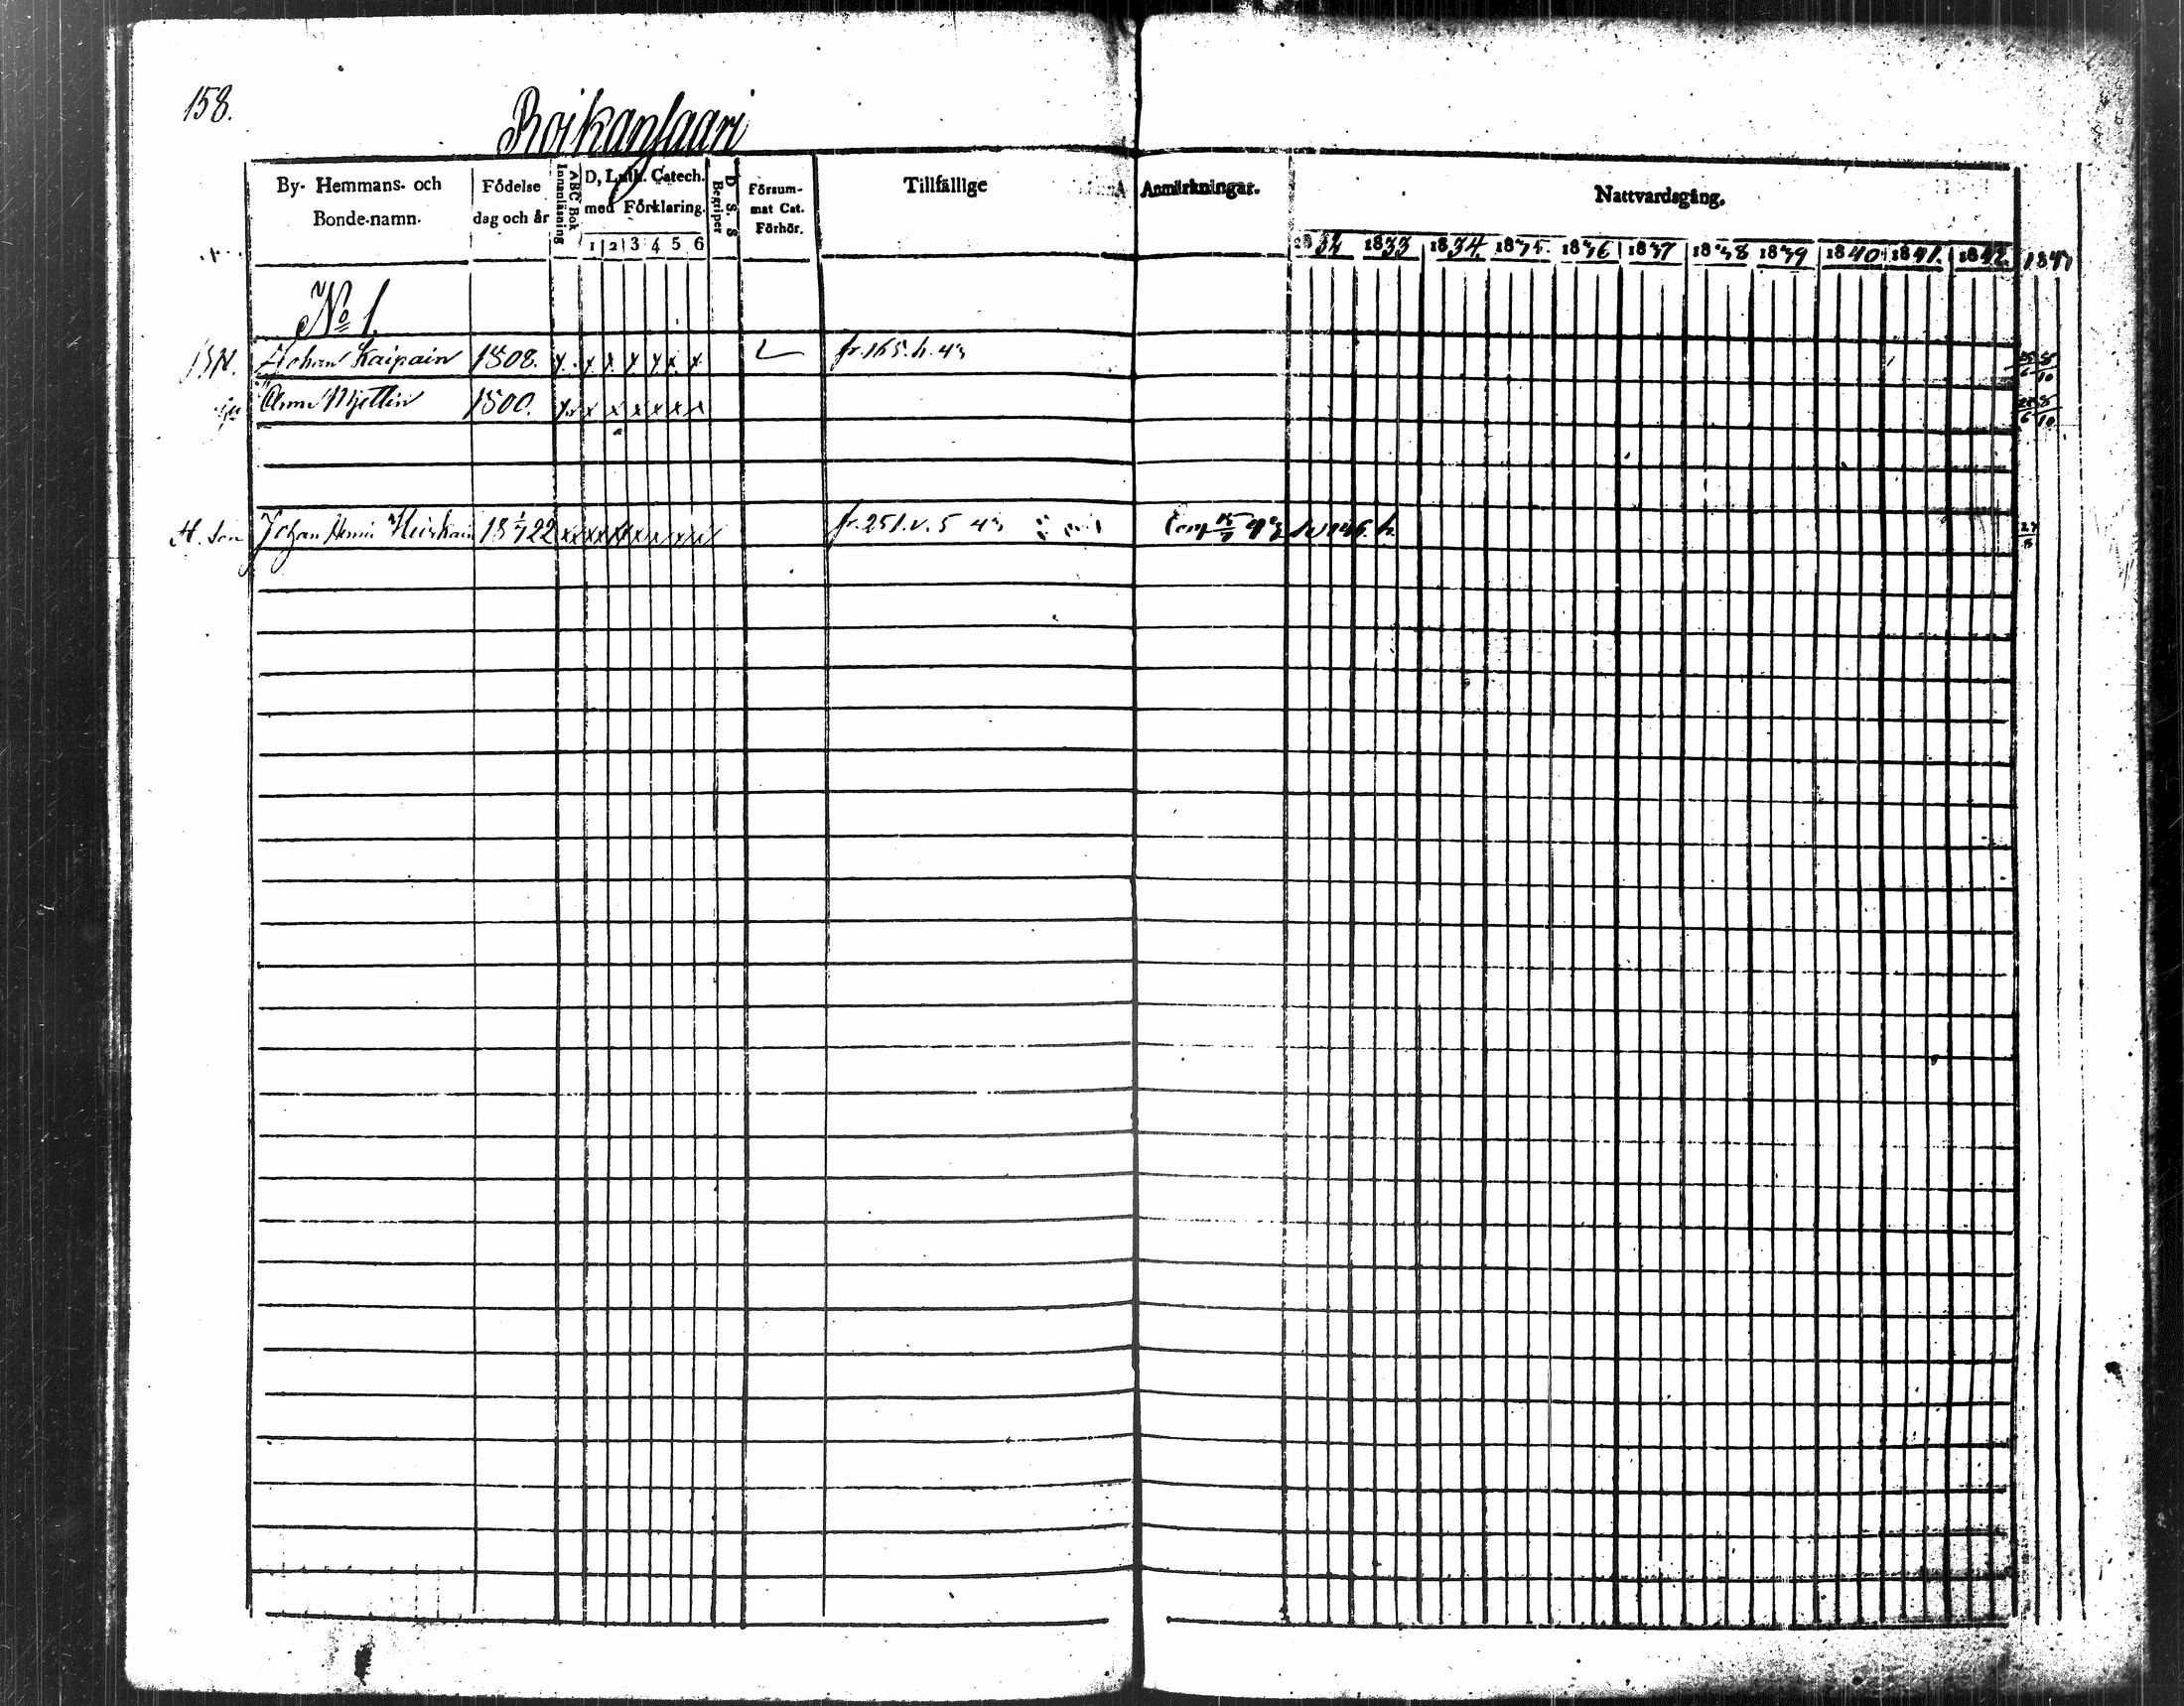 158.
Roikansaari
By- Hemmans- och Bonde-namn.
Födelse dag och år
Innanläsning
ABC Bok
D, Luth. Catech. med Förklaring.
1 2 3 4 5 6
D S. S Begriper
Försum-mat Cat. Förhör.
Tillfällige Anmärkningar.
Nattvardsgång.
1832 1833 1834. 1835 1836 1837 1838 1839 1840 1841. 1842. 1843
No 1.
Johan Kaipain 1808. x x x x x x x fr. 165. h. 43 8/10
Anna 1800. x x x x x x x 8/10
H. Son Johan Henric 18 1/7 22 fr. 251. v. 5 43